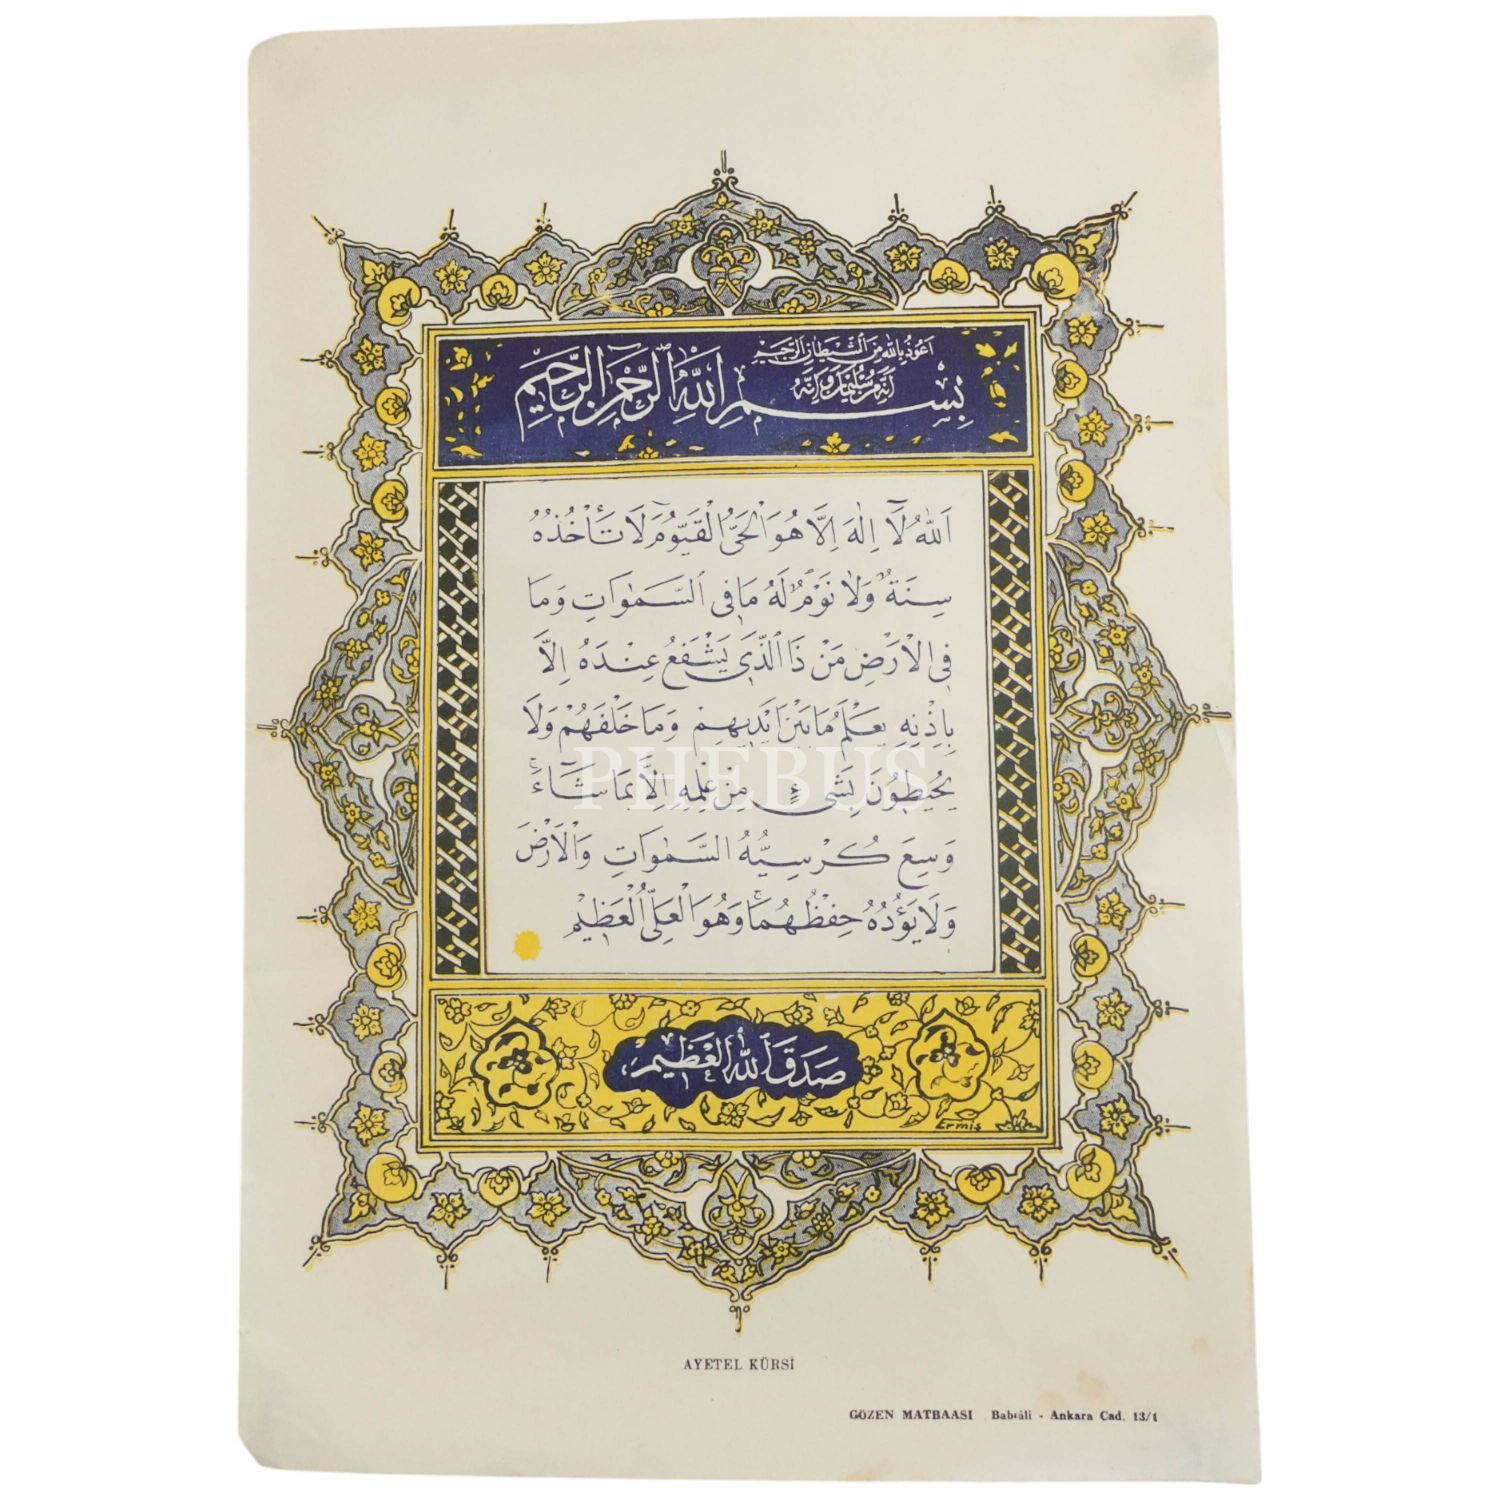 اَعُوذُ بِاللهِ مِنَ الشَّيْطَانِ الرَّجِيمِ
اِنَّهُ مِنْ سُلَيْمَانَ وَاِنَّهُ
بِسْمِ اللهِ الرَّحْمٰنِ الرَّحِيمِ
اَللهُ لَٓا اِلٰهَ اِلَّا هُوَ الْحَىُّ الْقَيُّومُ لَا تَأْخُذُهُ
سِنَةٌ وَلَا نَوْمٌ لَهُ مَا فِى السَّمٰوَاتِ وَمَا
فِى الْاَرْضِ مَنْ ذَا الَّذِى يَشْفَعُ عِنْدَهُ اِلَّا
بِاِذْنِهِ يَعْلَمُ مَا بَيْنَ اَيْدِيهِمْ وَمَا خَلْفَهُمْ وَلَا
يُحِيطُونَ بِشَىْءٍ مِنْ عِلْمِهِ اِلَّا بِمَا شَٓاءَ
وَسِعَ كُرْسِيُّهُ السَّمٰوَاتِ وَالْاَرْضَ
وَلَا يَؤُدُهُ حِفْظُهُمَا وَهُوَ الْعَلِىُّ الْعَظِيمُ
صَدَقَ اللهُ الْعَظِيمُ
Ermiş
PHEBUS
AYETEL KÜRSİ
GÖZEN MATBAASI Babıâli - Ankara Cad. 13/1